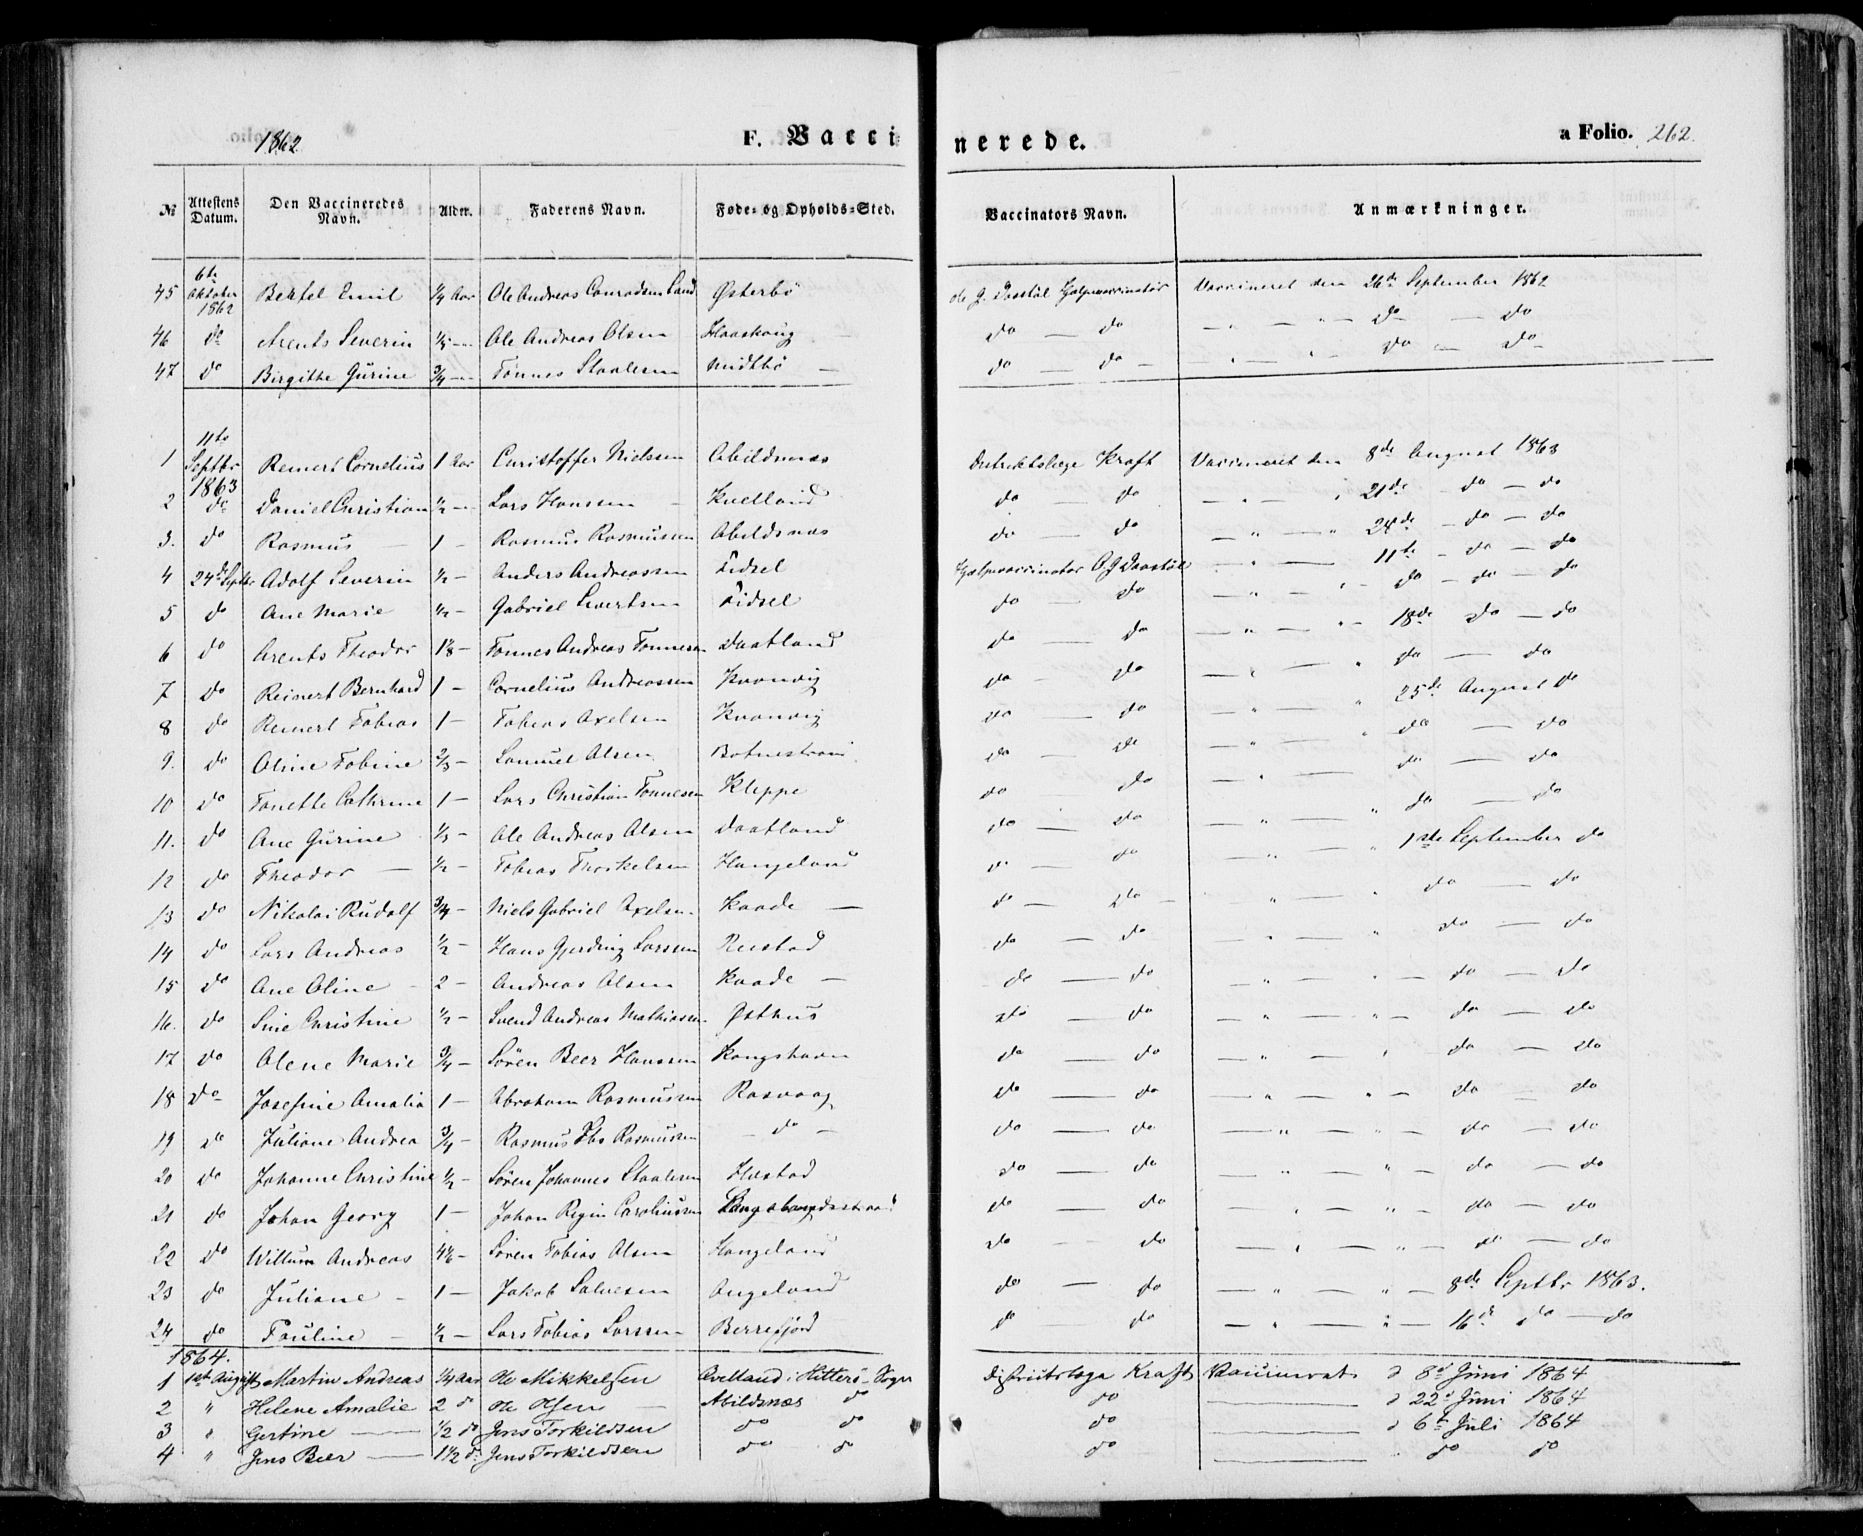 1862 F. Vaccinerede. a Folio. 262.
№ Attestens Datum. Den Vaccineredes Navn. Alder. Faderens Navn. Føde- og Opholds-Sted. Vaccinators Navn. Anmærkninger.
45 6te Oktober 1862 Bertel Emil 1/4 Aar Ole Andreas Conradsen Lund Østerbö Vaccineret den 26de September 1862
46 do Arents Severin Ole Andreas Olsen Haaskoug do — do — " — " do — do
47 do Birgitte Gurine 3/4 — Tönnes Staalesen Midtbö do do — " — " do — do
1 11te Septbr 1863 Reinert Cornelius 1 Aar Christoffer Nielsen Abildsnæs Distriktslæge Kraft Vaccineret den 8de August 1863
2 do Daniel Christian 1/2 — Lars Hansen Kvelland do — do — " — " 21de — do — do
3. do Rasmus — 1 — Rasmus Rasmussen Abildsnæs do — do — " — " 24de — do — do
4 24de Septbr Adolf Severin 1/2 — Anders Andreassen Fidsel Hjelpevaccinator O G Daastöl — " — " 11te — do — do
5 do Ane Marie 1/2 — Gabriel Sivertsen Fidsel do — do — " — " do — do — do
6 do Arents Theodor — Tönnes Andreas Tönnesen Daatland do — do — " — " 18de do — do
7 do Reinert Bernhard 1 — Cornelius Andreassen Kvanvig do — do — " — " do — do
8 do Reinert Tobias 1 — Tobias Axelsen Kvanvig do — do — " — " 25de August do
9. do Oline Tobine 2/3 — Samuel Olsen do — do — " — " do — do
10 do Tonette Cathrine 1 — Lars Christian Tönnesen Kleppe do do — " — " do — do
11. do Ane Gurine 1/3 — Ole Andreas Olsen Daatland do — do — " — " do — do
12 do Theodor — 1/2 — Tobias Thorkelsen Haugeland do — do — " — " 1ste September do
13 do Nikolai Rudolf 3/4 — Niels Gabriel Axelsen Kaade — do — do — " — " do — do
14 do Lars Andreas 1/2 — Hans Gjerding Larssen Restad do — do — " — do — do
15 do Ane Oline 2 — Andreas Olsen Kaade — do — do — " — " — do — do
16. do Sine Christine 1/2 — Svend Andreas Mathiassen Østhus do — do — " — " — do — do
17 do Olene Marie 3/4 — Sören Beer Hanssen Kongshavn do — do — " — " do — do
18 do Josefine Amalia 1 — Abraham Rasmussen Rasvaag do — do — " — " — do — do
19 do Juliane Andrea 3/4 — Rasmus Rasmussen — do — do — do — " — " — do — do
20 do Johanne Christine 1/2 — Sören Johannes Staalesen Hæstad do — do — " — " — do — do
21 do Johan Georg 1 — Johan Regin Caroliussen do — do — " — " — do — do
22 do Willum Andreas — Sören Tobias Olsen Haugeland do — do — " — " — do — do
23 do Juliane — 1 — Jakob Salvesen Angeland do — do — " — " — 8de Septbr 1863.
24 do Pauline — 1/2 — Lars Tobias Larssen Berrefjord do — do — " — " — 16de do — do
1864.
1 1ste August Martin Andreas 1/4 Aar Ole Mikkelsen Qvelland i Hitterö Sogn Distriktslæge Kraft Vaccineret d 8de Juni 1864
2 " Helene Amalie 2 do Ole Olsen — Abildsnæs do do — d 22de Juni 1864
3 " Gertine — 1/2 do Jens Torkildsen do do do — d 6te Juli 1864
4 " Jens Beer — 1 1/2 do Jens Torkildsen do do do — " do do